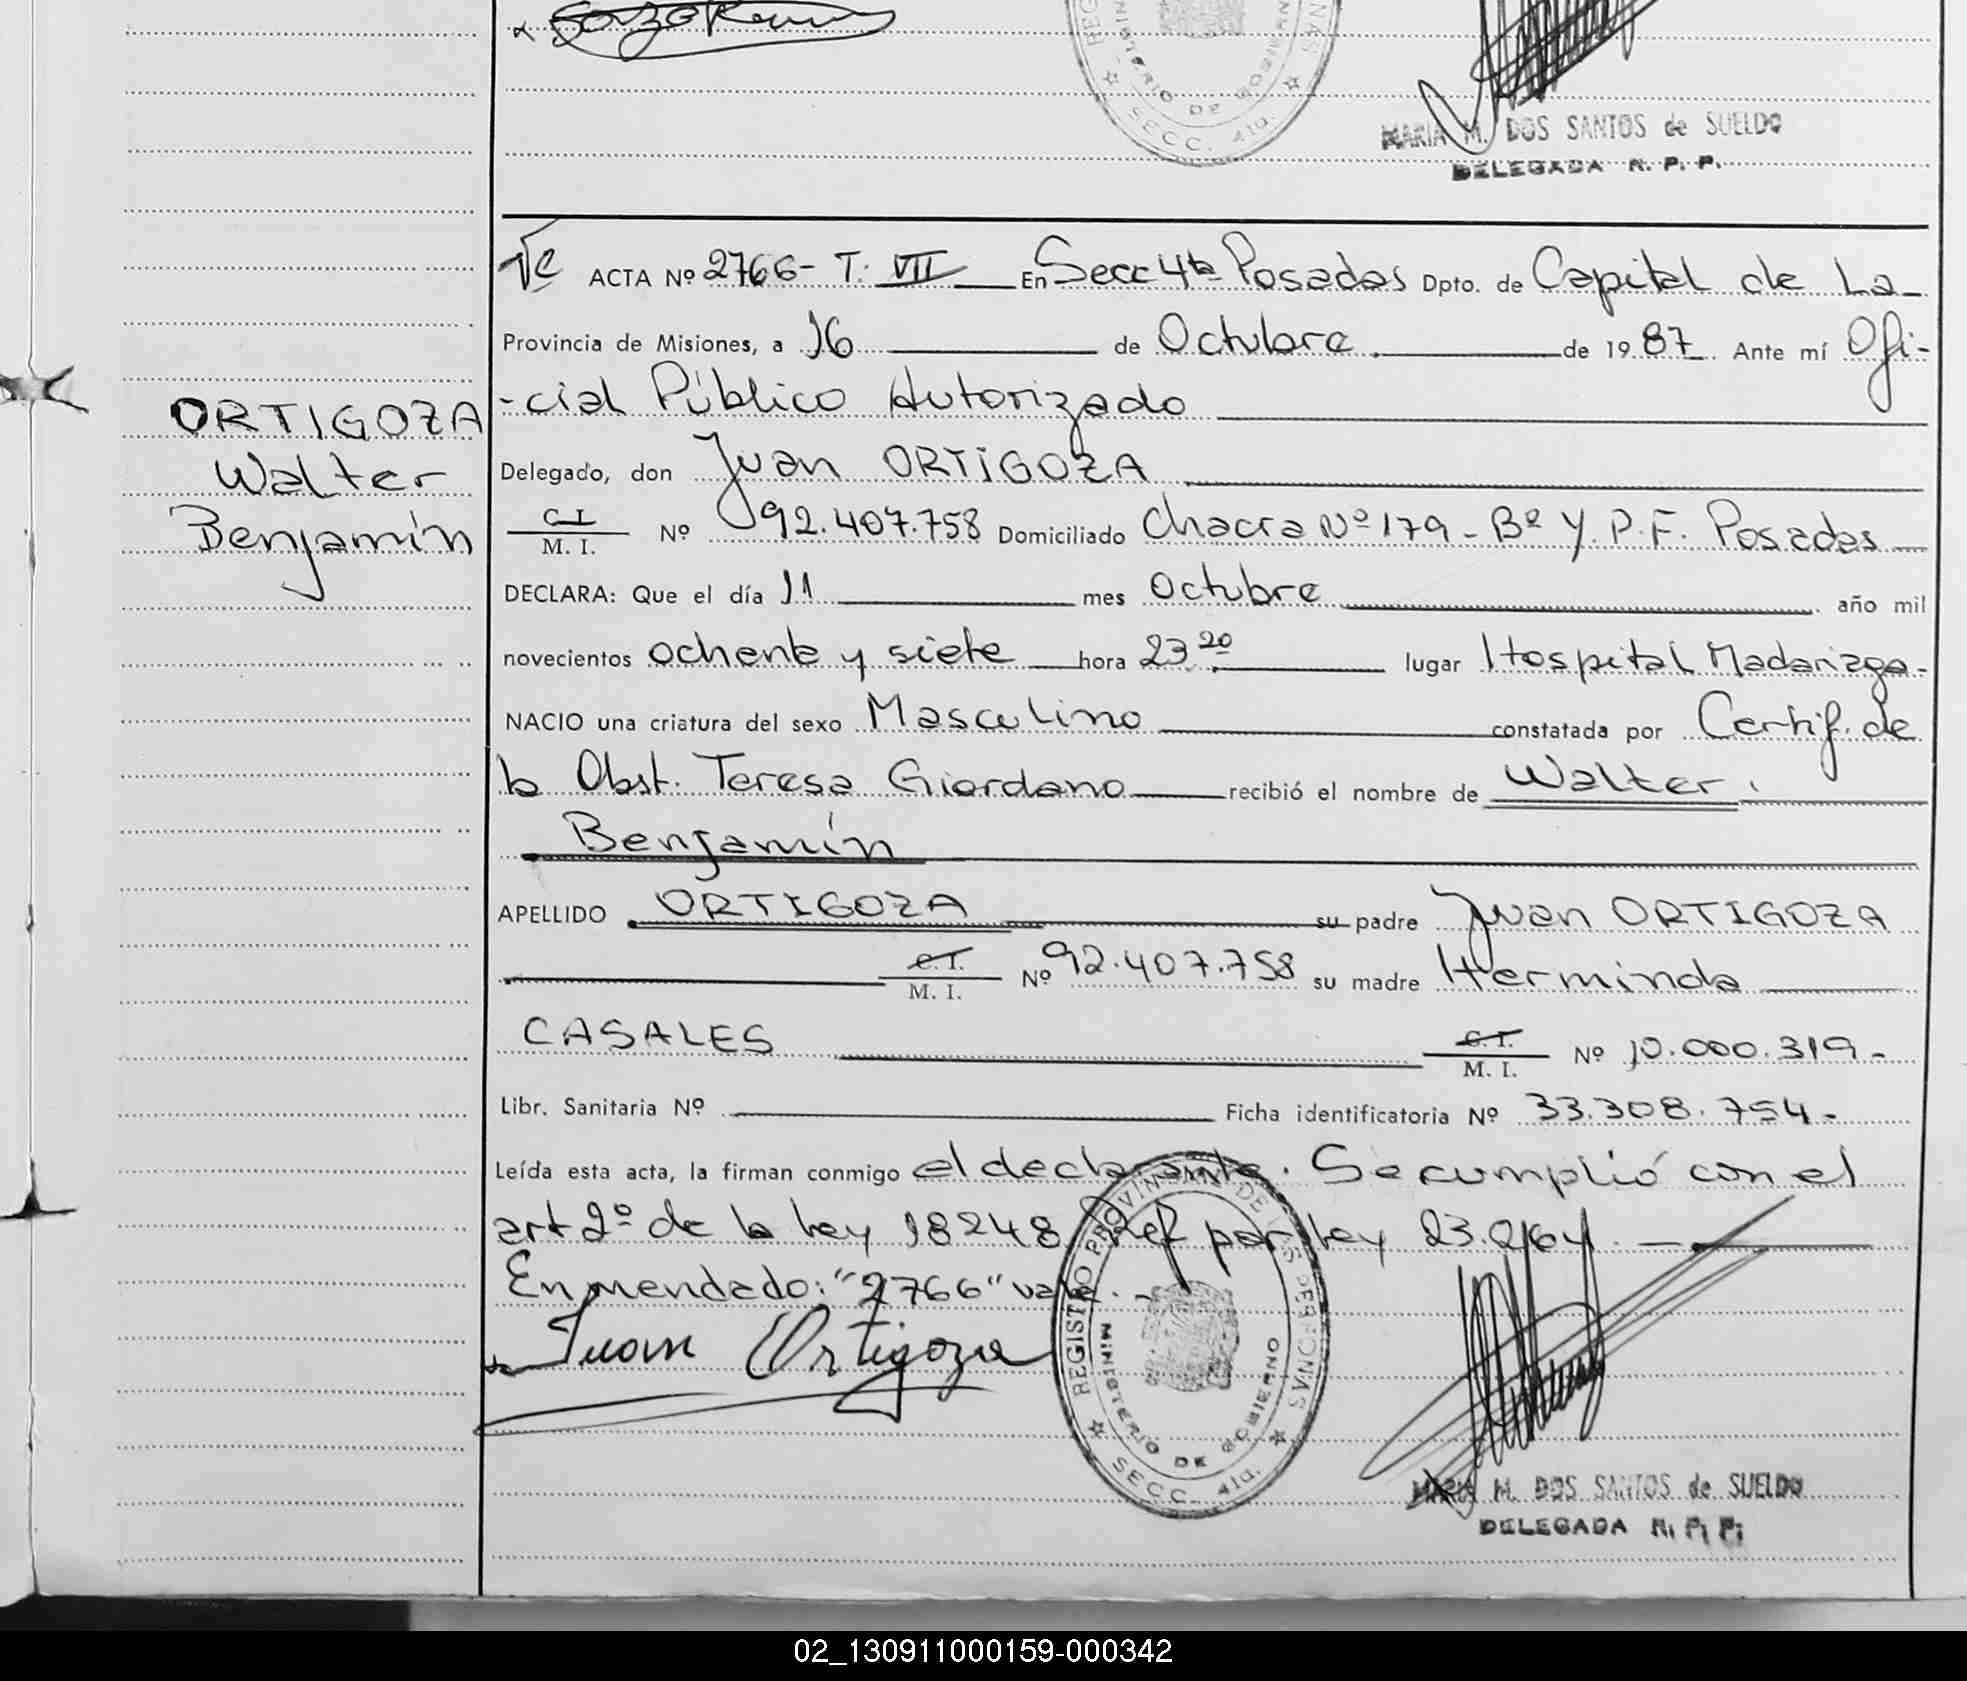 MARIA M. DOS SANTOS de SUELDO
DELEGADA R. P. P.
ACTA Nº 2766- T: VII En Secc 4ta Posadas Dpto. de Capital de La
Provincia de Misiones, a 16 de Octubre de 1987. Ante mí Ofi-
-cial Público Autorizado
ORTIGOZA
Walter
Benjamín
Delegado, don Juan ORTIGOZA
C.I. M. I. Nº 92.407.758 Domiciliado Chacra Nº 179 - Bº Y.P.F. Posadas
DECLARA: Que el día 11 mes Octubre año mil
novecientos ochenta y siete hora 23 20 lugar Hospital Madariaga-
NACIO una criatura del sexo Masculino constatada por Certif. de
la Obst. Teresa Giordano recibió el nombre de Walter
Benjamín
APELLIDO ORTIGOZA su padre Juan ORTIGOZA
C.I. M. I. Nº 92.407.758 su madre Herminda
CASALES C.I. M. I. Nº 10.000.319-
Libr. Sanitaria Nº Ficha identificatoria Nº 33.308.754-
Leída esta acta, la firman conmigo el declarante. Se cumplió con el
art 2º de la Ley 18248 Ref por Ley 23.264.
Enmendado: "2766" vale.-
Juan Ortigoza
REGISTRO PROVINCIAL DE LAS PERSONAS
MINISTERIO DE GOBIERNO
SECC. 4ta.
MARIA M. DOS SANTOS de SUELDO
DELEGADA R. P. P.
02_130911000159-000342